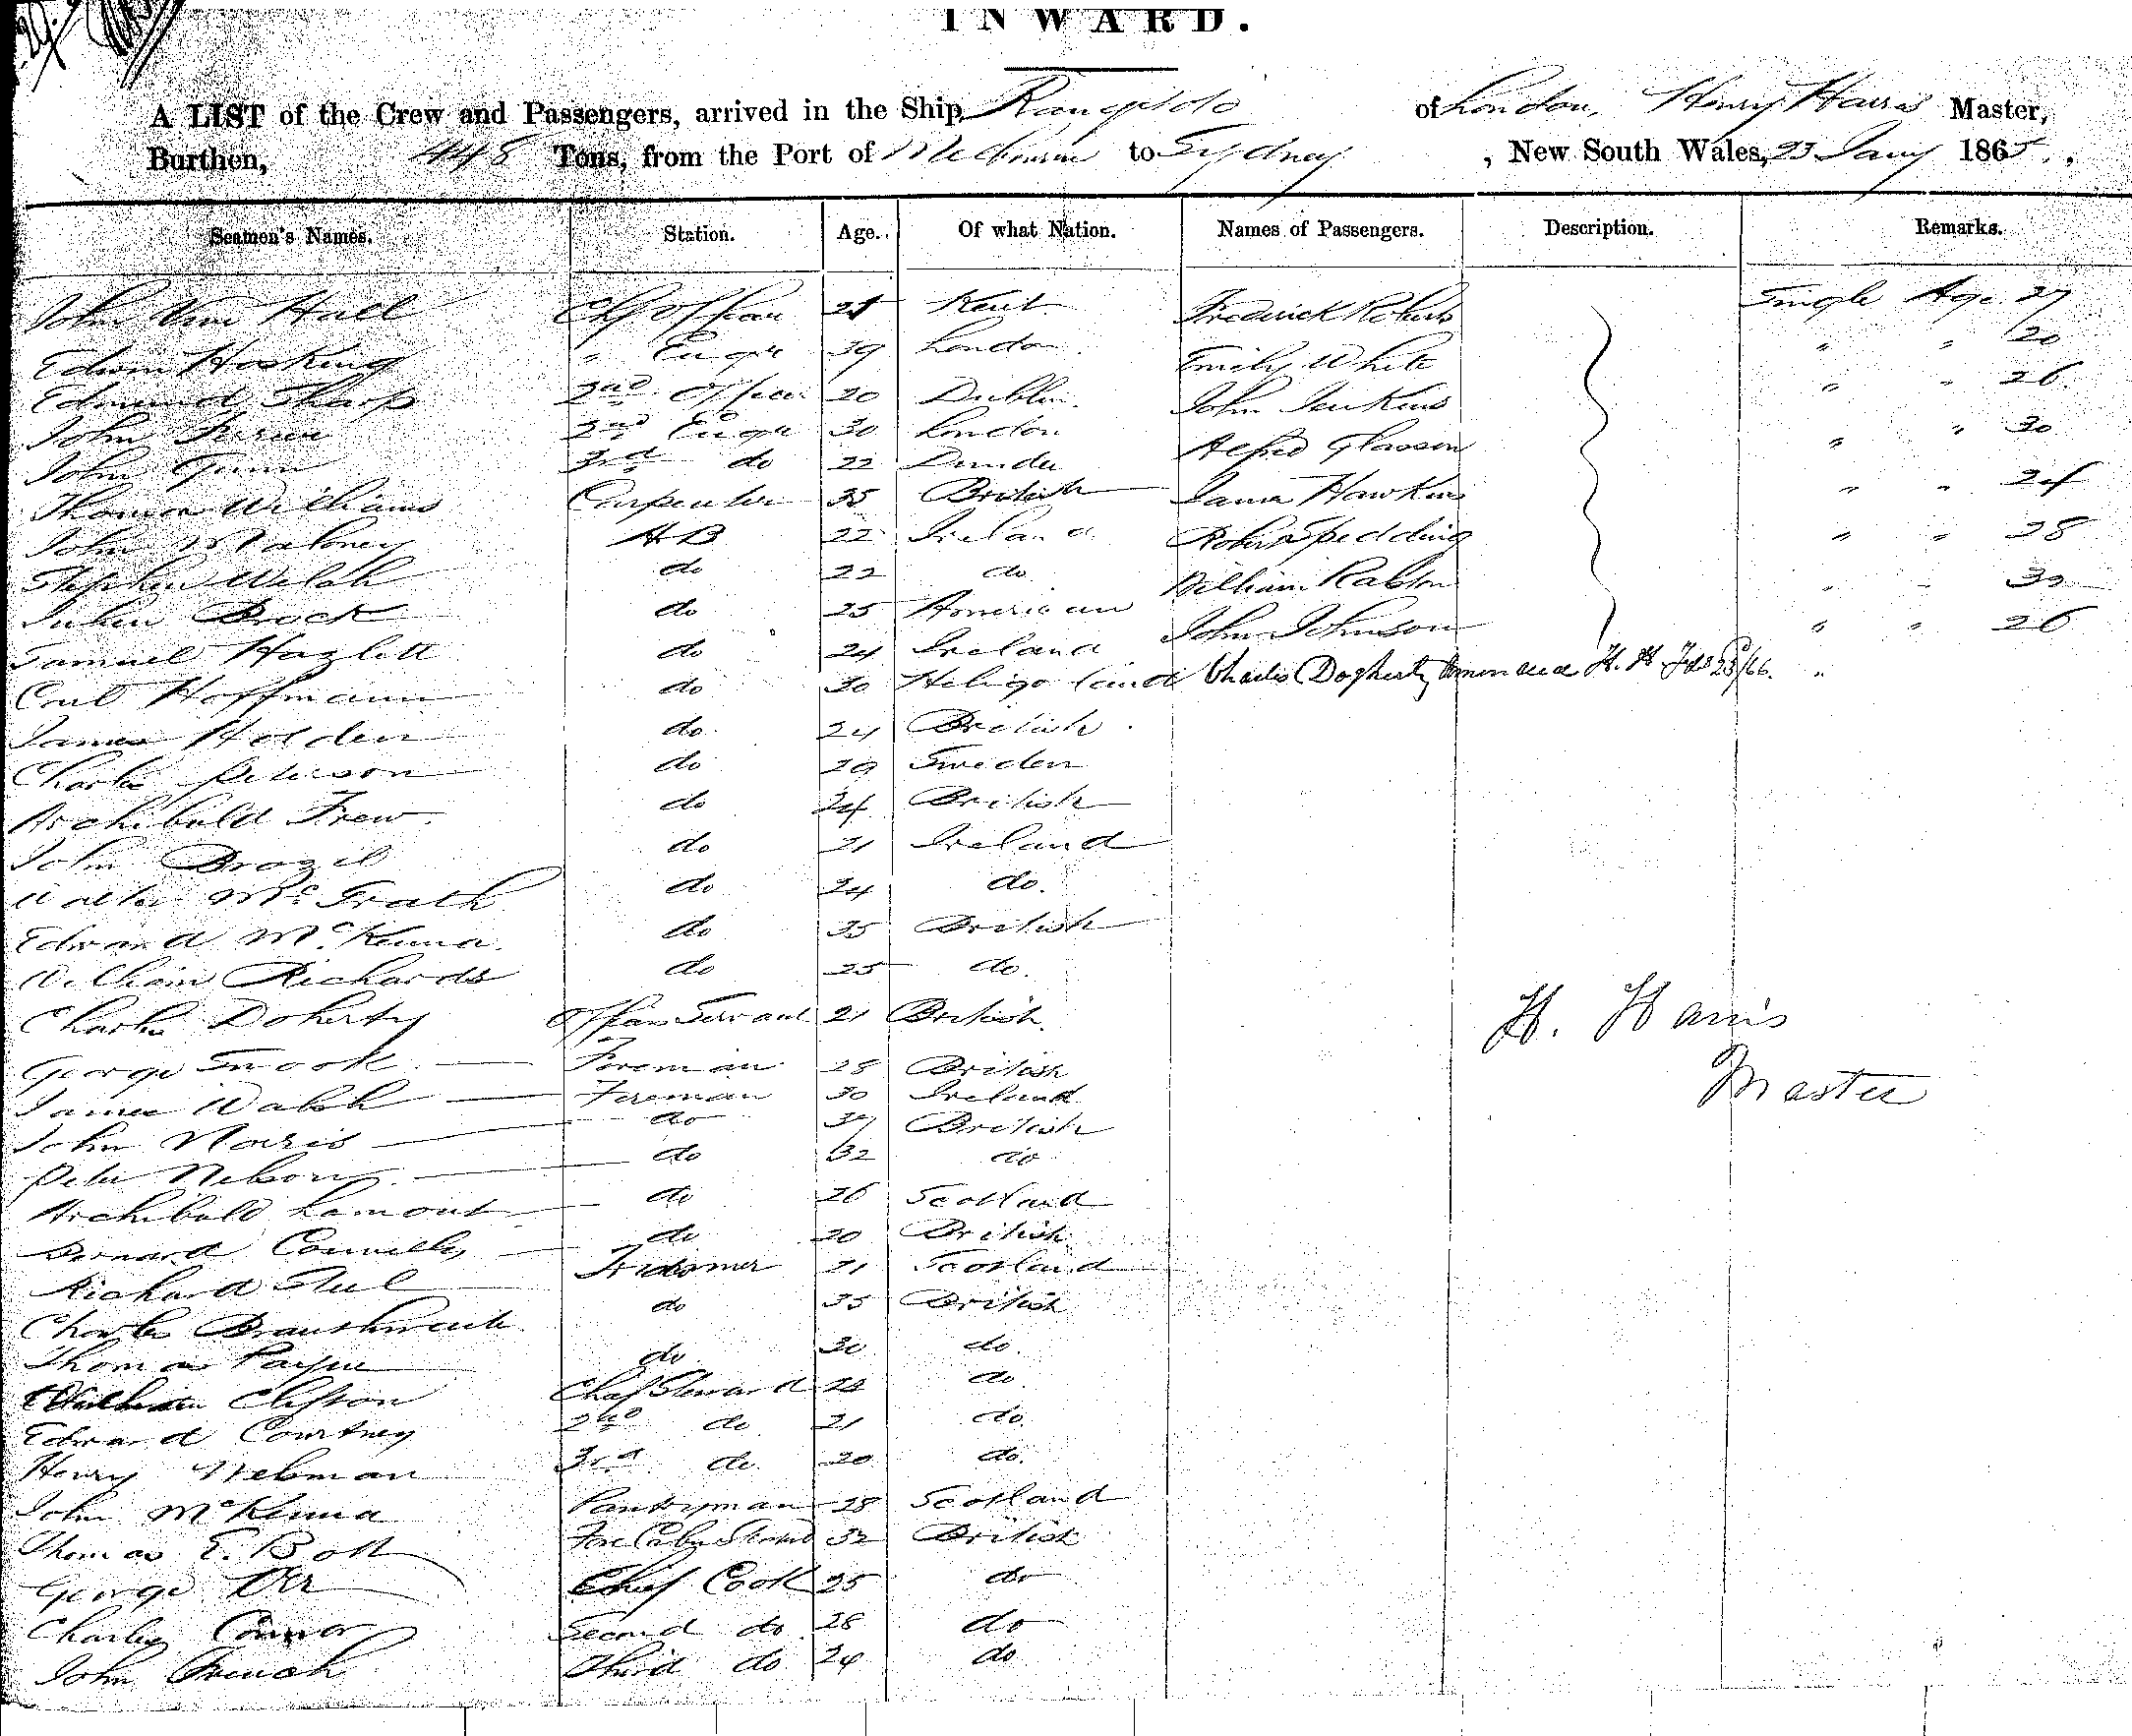 INWARD.
A LIST of the Crew and Passengers, arrived in the Ship of London, Henry Harris Master,
Burthen, 448 Tons, from the Port of to Sydney , New South Wales, 23 Jany 1865,
Seamen's Names. Station. Age. Of what Nation. Names of Passengers. Description. Remarks.
John Hall Kent Frederick Roberts Single Age 27
Edwin Hosking " 39 London Emily White " " 20
Edmund Sharp 2nd Officer 20 Dublin John Jenkins " " 26
John 2nd 30 London Alfred Glasson " " 30
John Gunn 3rd do 22 Dundee James Hawkins " " 24
Thomas Williams Carpenter 35 British Robert Spedding " " 28
John Maloney AB 22 Ireland William Ralston " " 30
Stephen Welsh do 22 do John Johnson " " 26
Brock do 25 American
Samuel Hazlett do 24 Ireland
Carl Hoffmann do 30 Heligoland Charles Dogherty H. H. "
James Holden do 24 British
Charles Peterson do 29 Sweden
Archibald Frew do 24 British
John Brazil do 21 Ireland
Walter McGrath do 24 do.
Edward McKenna do 35 British
William Richards do 25 do.
Charles Doherty Servant 21 British
George Snook Foreman 28 British
James Walsh Fireman 30 Ireland
John Norris do British
Peter Nelson do 32 do
Archibald Lamont do 26 Scotland
Bernard Connelly do 20 British
Richard Steel Trimmer 21 Scotland
Charles Braithwaite do 35 British
Thomas Payne do 30 do.
William Clifton Chief Steward 24 do
Edward Courtney 2nd do 21 do
Henry 3rd do 20 do.
John McKenna Pantryman 28 Scotland
Thomas E. Bott Fore Cabin Steward 32 British
George Orr Chief Cook 25 do
Charley Connor Second do 28 do
John French Third do 24 do
H. Harris
Master